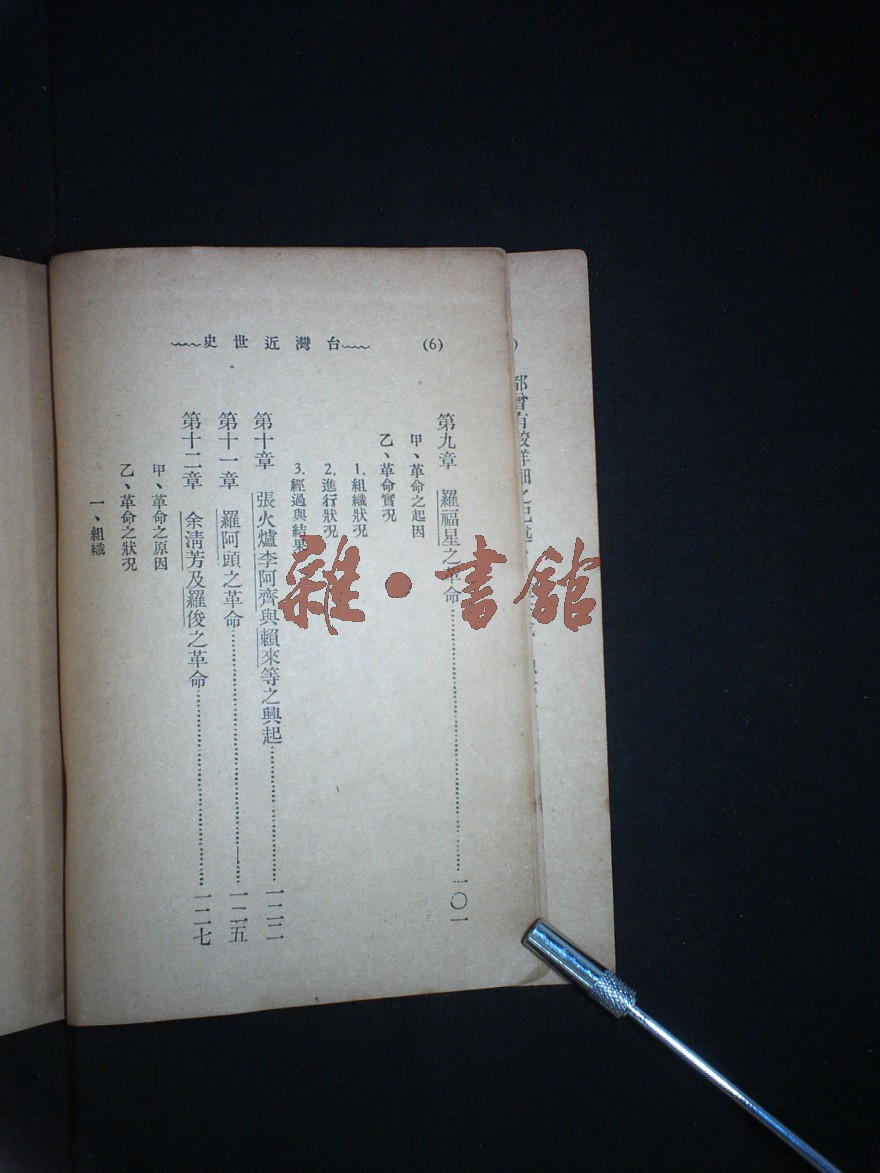 (6)
台灣近世史
第九章 羅福星之革命 一〇一
甲、革命之起因
乙、革命實況
1.組織狀況
2.進行狀況
3.經過與結果
第十章 張火爐李阿齊與賴來等之興起 一二二
第十一章 羅阿頭之革命 一二五
第十二章 余清芳及羅俊之革命 一二七
甲、革命之原因
乙、革命之狀況
一、組織
雜·書館